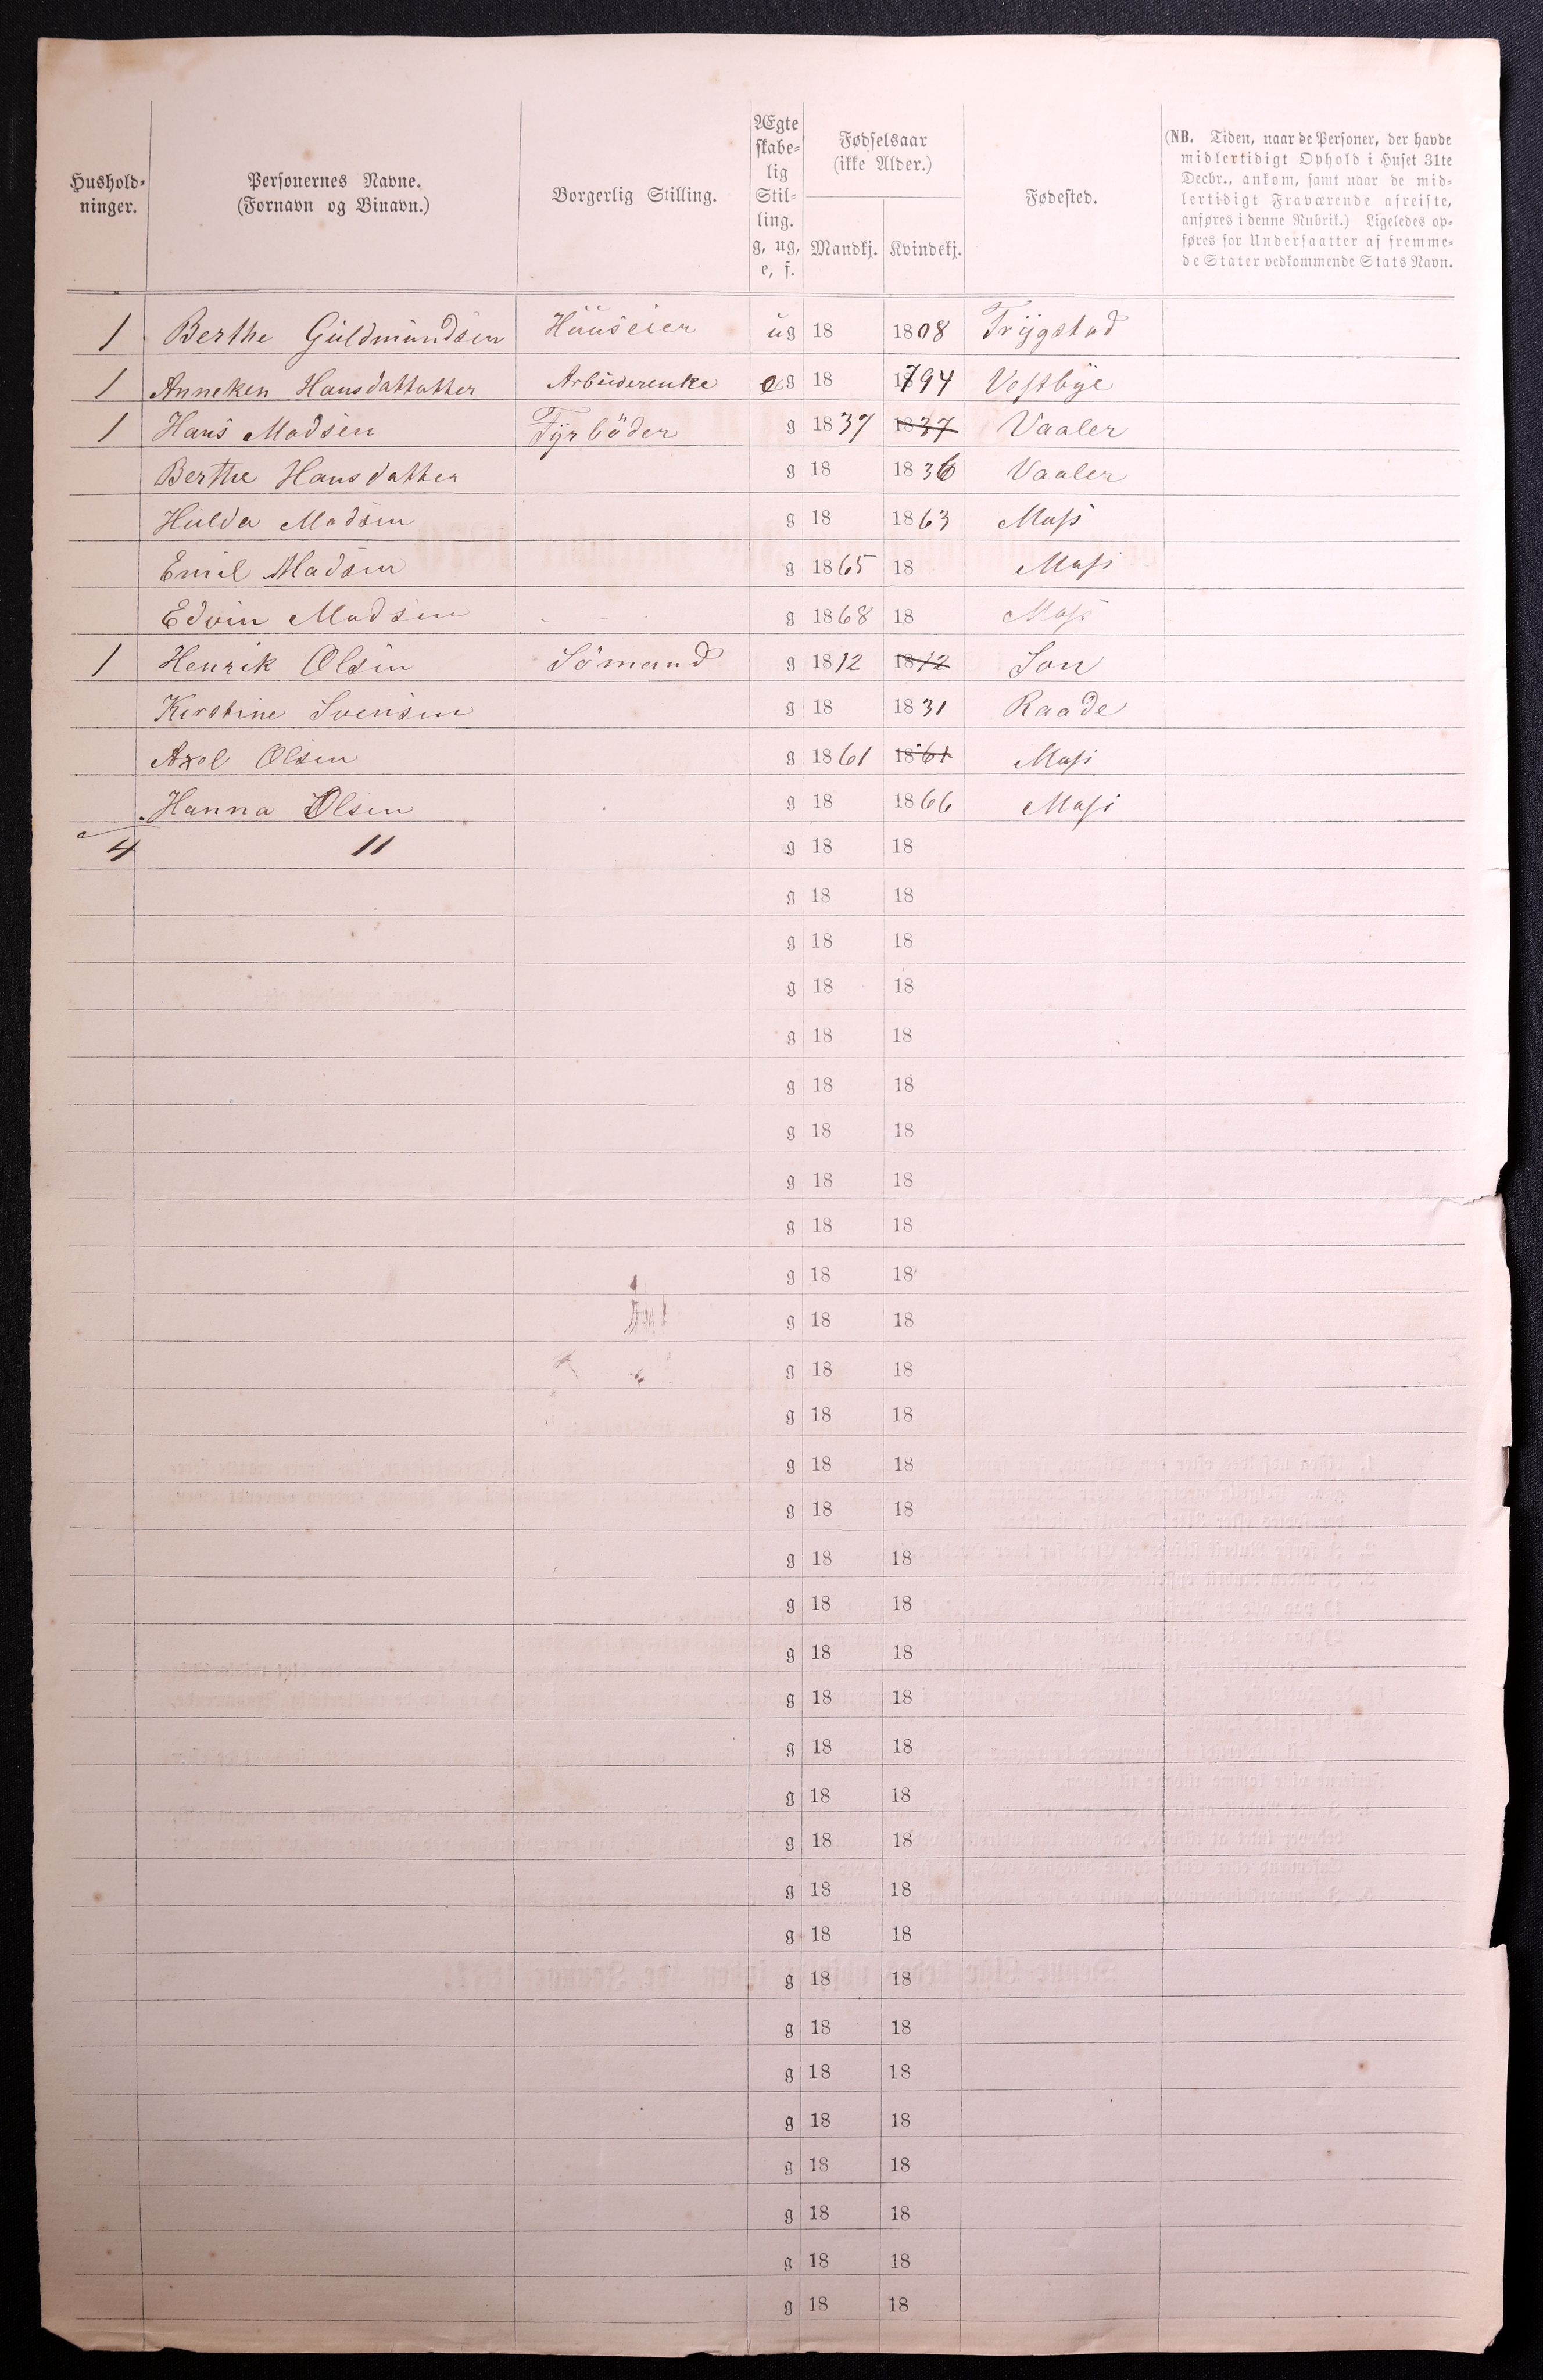 Hushold-ninger. Personernes Navne. (Fornavn og Binavn.) Borgerlig Stilling. Ægte skabe-lig Stil-ling. g, ug, e, f. Fødselsaar (ikke Alder.) Mandkj. Kvindekj. Fødested. (NB. Tiden, naar de Personer, der havde midlertidigt Ophold i Huset 31te Decbr., ankom, samt naar de mid-lertidigt Fraværende afreiste, anføres i denne Rubrik.) Ligeledes op-føres for Undersaatter af fremme-de Stater vedkommende Stats Navn.
1 Berthe Guldmundsen Huuseier ug 18 1808 Trygstad
1 Anneken Hansdattatter Arbeiderenke eg 18 1794 Vestbye
1 Hans Madsen Fyrböder g 1837 1837 Vaaler
Berthe Hansdatter g 18 1836 Vaaler
Hulda Madsen g 18 1863 Moss
Emil Madsen g 1865 18 Moss
Edvin Madsen g 1868 18 Moss
1 Henrik Olsen Sömand g 1812 1812 Son
Kirstine Svensen g 18 1831 Raade
Axel Olsen g 1861 1861 Moss
Hanna Olsen g 18 1866 Moss
4 11 g 18 18
g 18 18
g 18 18
g 18 18
g 18 18
g 18 18
g 18 18
g 18 18
g 18 18
g 18 18
g 18 18
g 18 18
g 18 18
g 18 18
g 18 18
g 18 18
g 18 18
g 18 18
g 18 18
g 18 18
g 18 18
g 18 18
g 18 18
g 18 18
g 18 18
g 18 18
g 18 18
g 18 18
g 18 18
g 18 18
g 18 18
g 18 18